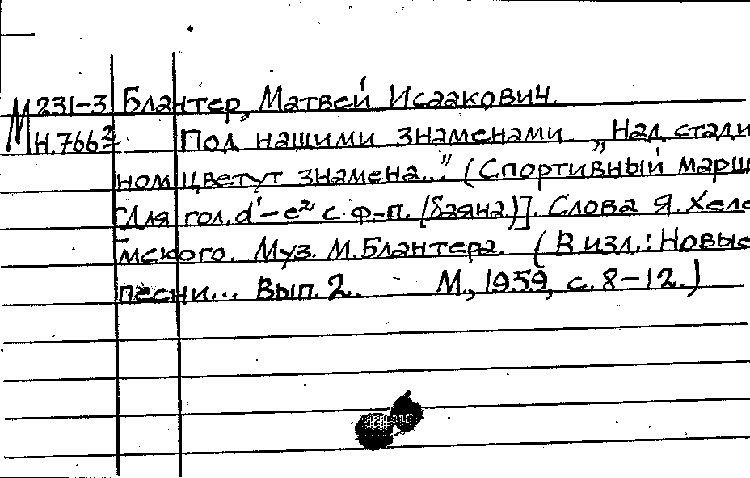 М 231-3 Блантер, Матвей Исаакович.
Н.766² Под нашими знаменами „Над стади
ном цветут знамена.." (Спортивный марш
[Для гол. d'–e² с ф-п. (баяна)]. Слова Я. Хеле
мского. Муз. М. Блантера. (В изд.: Новые
песни... Вып. 2. М., 1959, с. 8–12.)